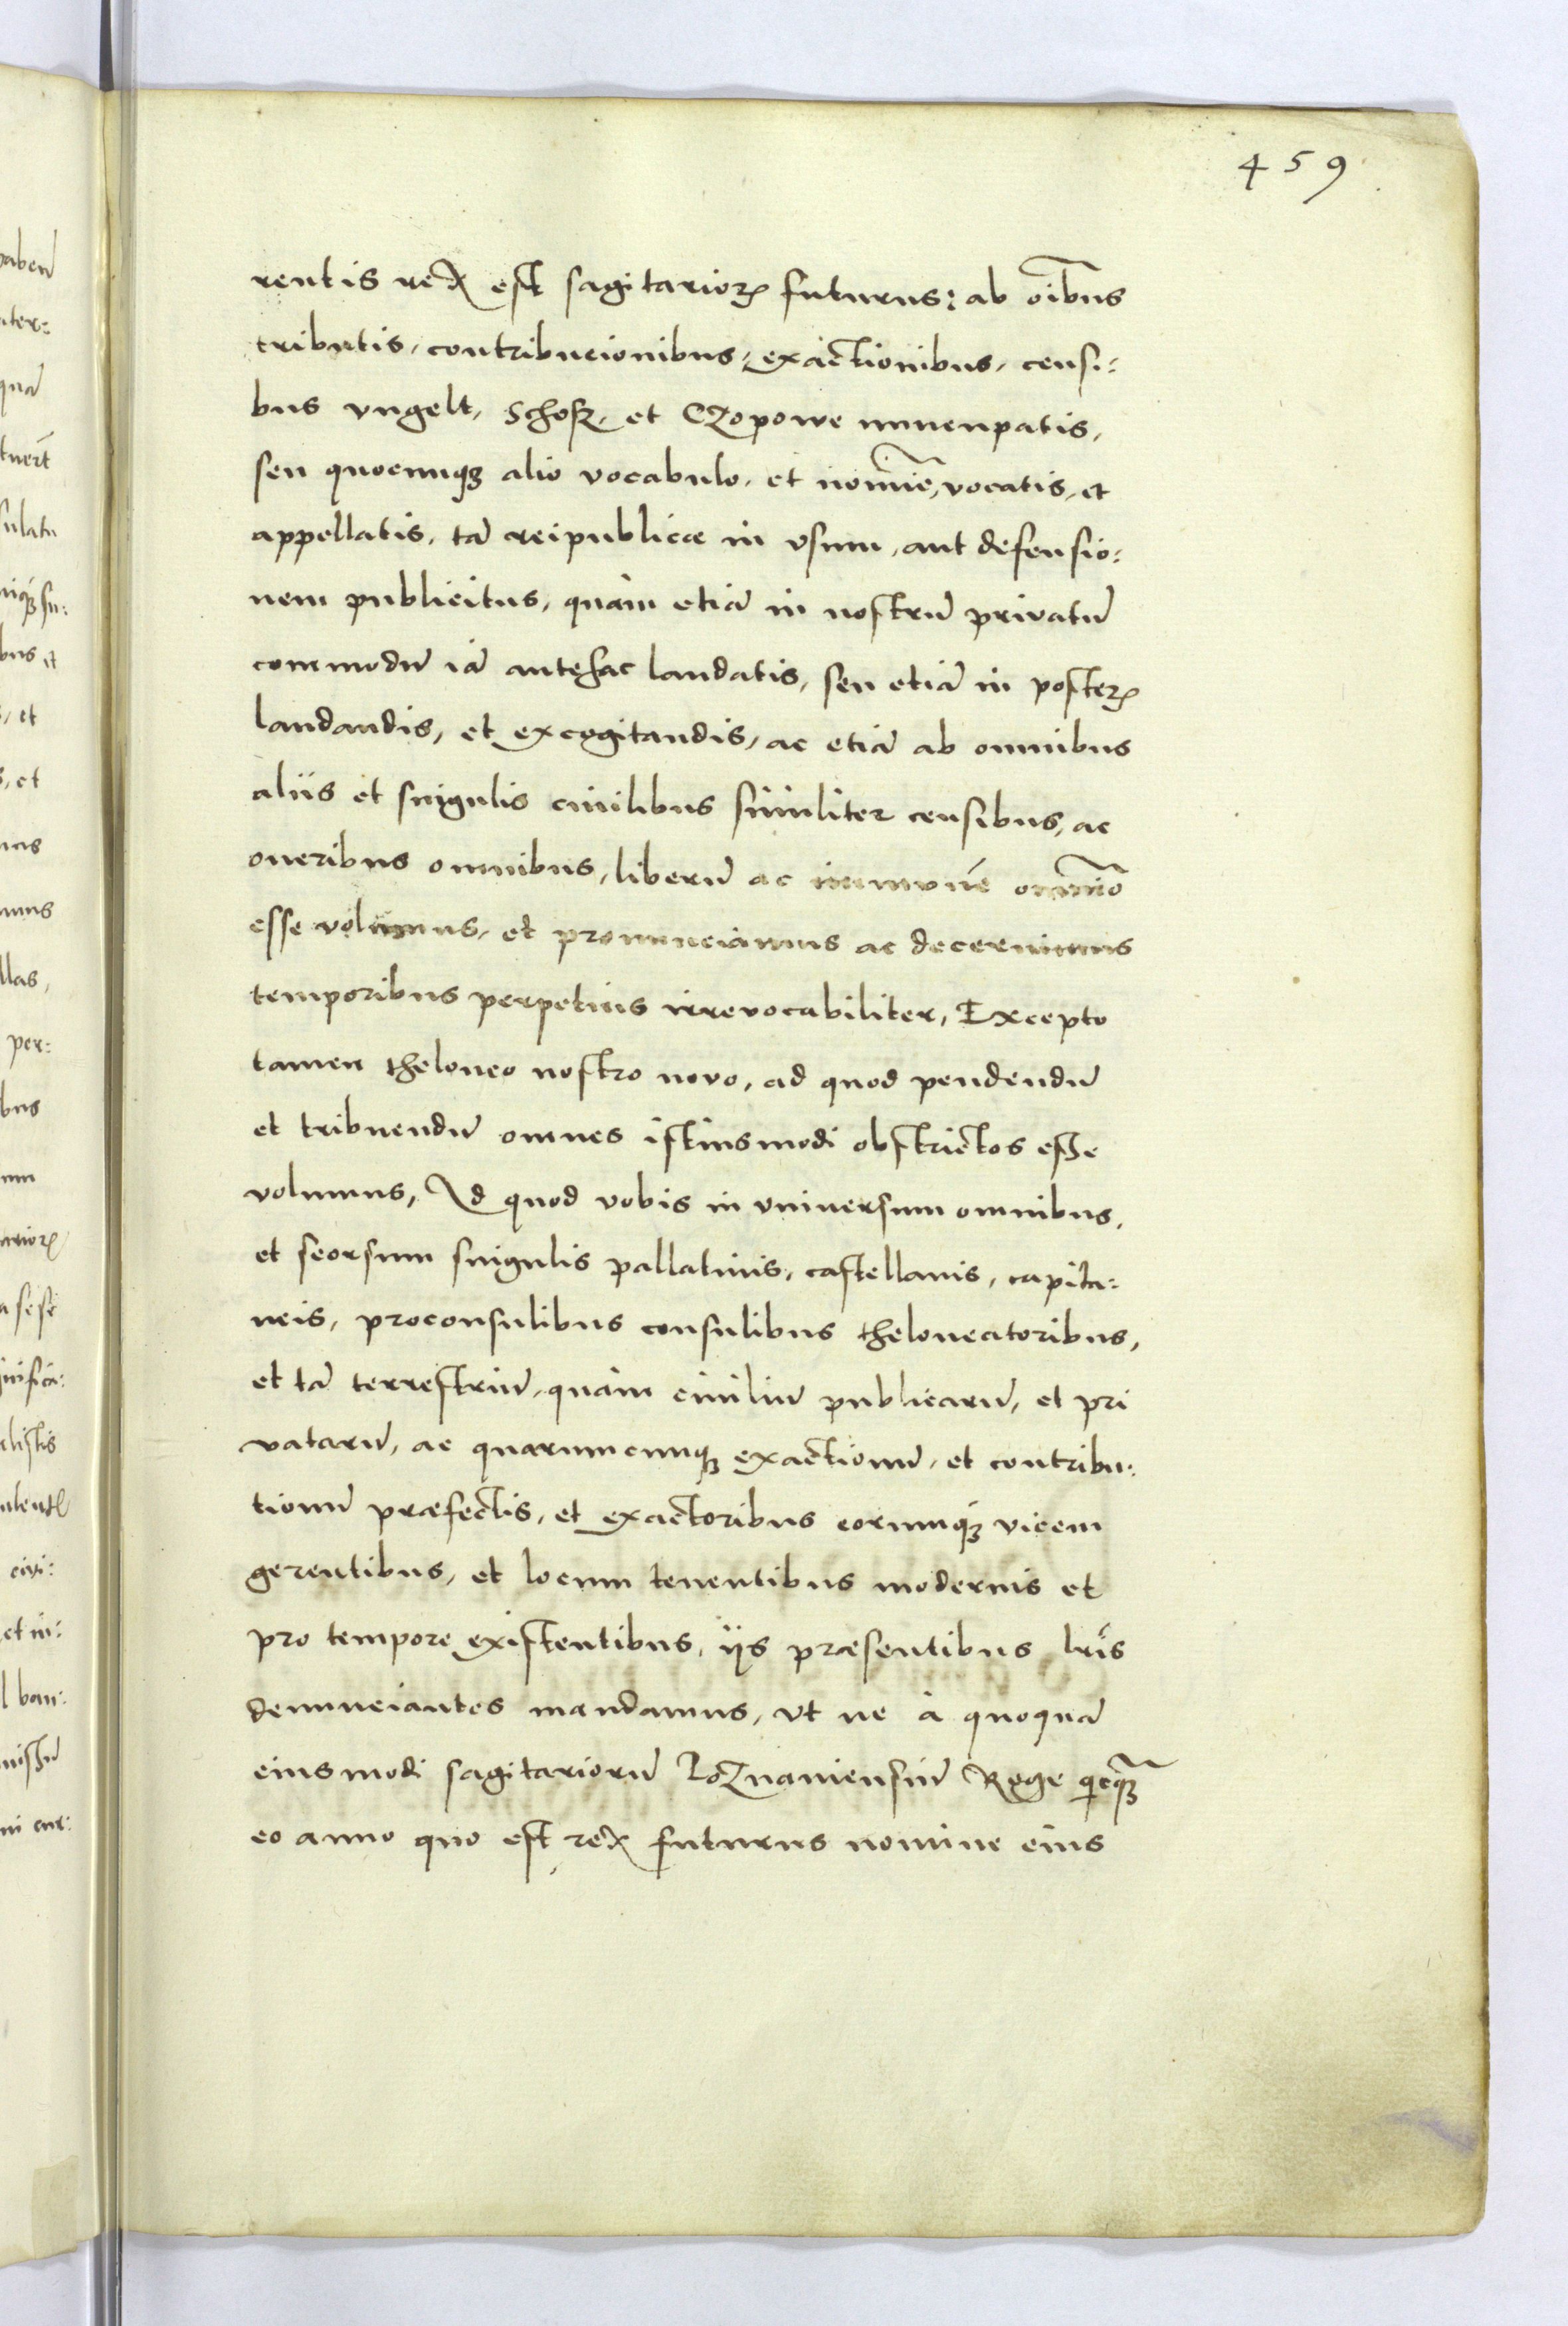 459
rentis rex est sagitarioꝝ futurus: ab oībus
tributis, contribucionibus, exactionibus, censi:
bus vngelt, Schosz, et Czopowe nuncupatis,
seu quocunqꝫ alio vocabulo, et nomīe, vocatis, et
appellatis, tā reipublicæ in vsum, aut defensio:
nem publicitus, quàm etiā in nostrū privatū
commodū iā antehac laudatis, seu etiā in posteꝝ
laudandis, et excogitandis, ac etiā ab omnibus
aliis et singulis civilibus similiter censibus, ac
oneribus omnibus, liberū ac immunē omnīo
esse volumus, et pronunciamus ac decernimus
temporibus perpetuis irrevocabiliter, Excepto
tamen theloneo nostro novo, ad quod pendendū
et tribuendū omnes istiusmodi obstrictos esse
volumus, Id quod vobis in vniversum omnibus,
et seorsum singulis pallatinis, castellanis, capita:
neis, proconsulibus consulibus theloneatoribus,
et tā terrestriū, quàm civiliū publicarū, et pri
vatarū, ac quarumcunqꝫ exactionū, et contribu:
tionū præfectis, et exactoribus eorumqꝫ vicem
gerentibus, et locum tenentibus modernis et
pro tempore existentibus, ijs præsentibus lr̄is
denunciantes mandamus, vt ne à quoquā
eiusmodi sagitariorū Poznaniensiū Rege qicqꝫ
eo anno quo est rex futurus nomine eius